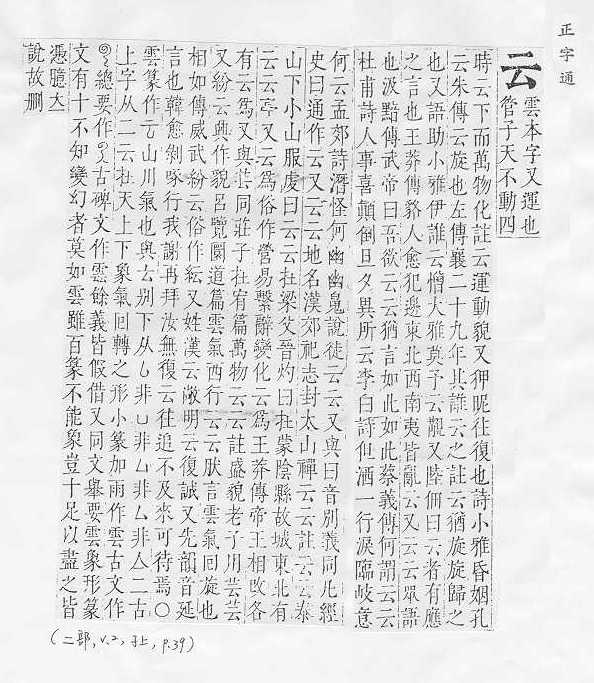 正字通
云 雲本字又運也
管子天不動四
時云下而萬物化註云運動貌又狎昵往復也詩小雅昏姻孔
云朱傳云旋也左傳襄二十九年其誰云之註云猶旋旋歸之
也又語助小雅伊誰云憎大雅莫予云覯又陸佃曰云者有應
之言也王莽傳貉人愈犯邊東北西南夷皆亂云又云云眾語
也汲黯傳武帝曰吾欲云云猶言如此如此蔡義傳何謂云云
杜甫詩人事喜顛倒旦夕異所云李白詩但洒一行淚臨岐意
何云孟郊詩潛怪何幽幽鬼說徒云云又與曰音別義同凡經
史曰通作云又云云地名漢郊祀志封太山禪云云註云云泰
山下小山服虔曰云云在梁父晉灼曰在蒙陰縣故城東北有
云云亭又云為俗作營易繫辭變化云為王莽傳帝王相改各
有云為又與芸同莊子在宥篇萬物云云註盛貌老子用芸芸
又紛云興作貌呂覽圜道篇雲氣西行云云肰言雲氣回旋也
相如傳威武紛云俗作紜又姓漢云敞明云復誠又先韻音延
言也韓愈剝啄行我謝再拜汝無復云往追不及來可待焉○
雲篆作云山川氣也與𠫓別下从 非凵非厶非 非亼二古
上字从二云在天上下象氣回轉之形小篆加雨作雲古文作
總要作 古碑文作 餘義皆假借又同文舉要雲象形篆
文有十不知變幻者莫如雲雖百篆不能象豈十足以盡之皆
憑臆大
說故刪
(二部, v.2, 子上, p.39)